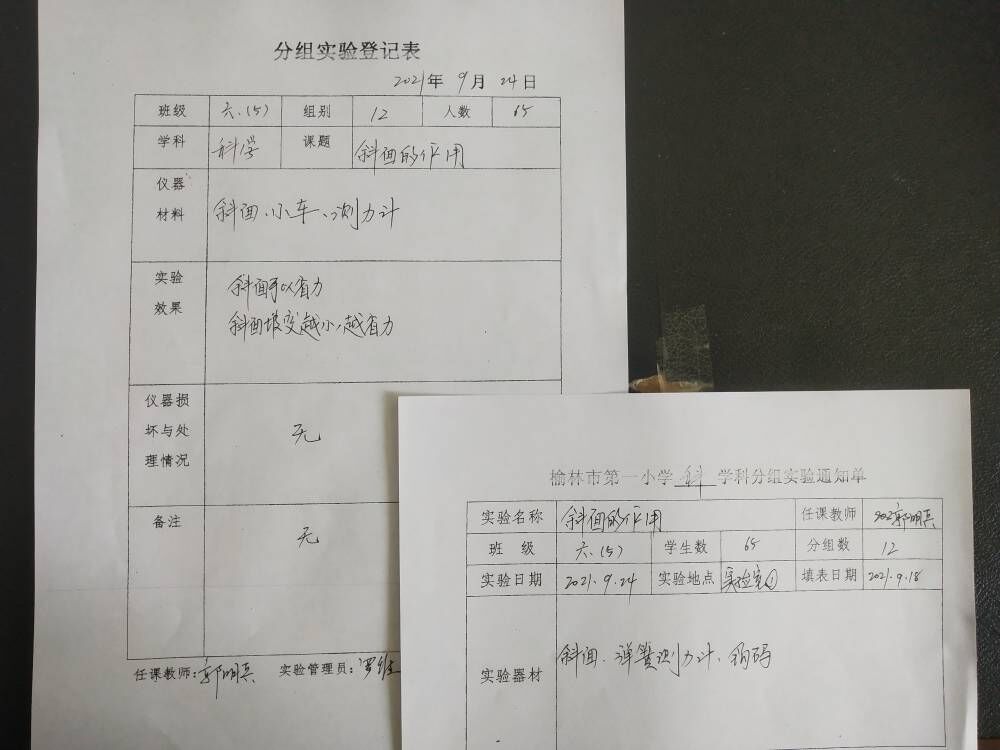 分组实验登记表
2021年 9月 24日
班级 六.(5) 组别 12 人数 65
学科 科学 课题 斜面的作用
仪器
材料
斜面、小车、测力计
实验
效果
斜面可以省力
斜面坡度越小,越省力
仪器损
坏与处
理情况
无
备注
无
任课教师: 郭明兵 实验管理员:
榆林市第一小学 科 学科分组实验通知单
实验名称 斜面的作用 任课教师 郭明兵
班 级 六.(5) 学生数 65 分组数 12
实验日期 2021.9.24 实验地点 实验室① 填表日期 2021.9.18
实验器材
斜面、弹簧测力计、钩码